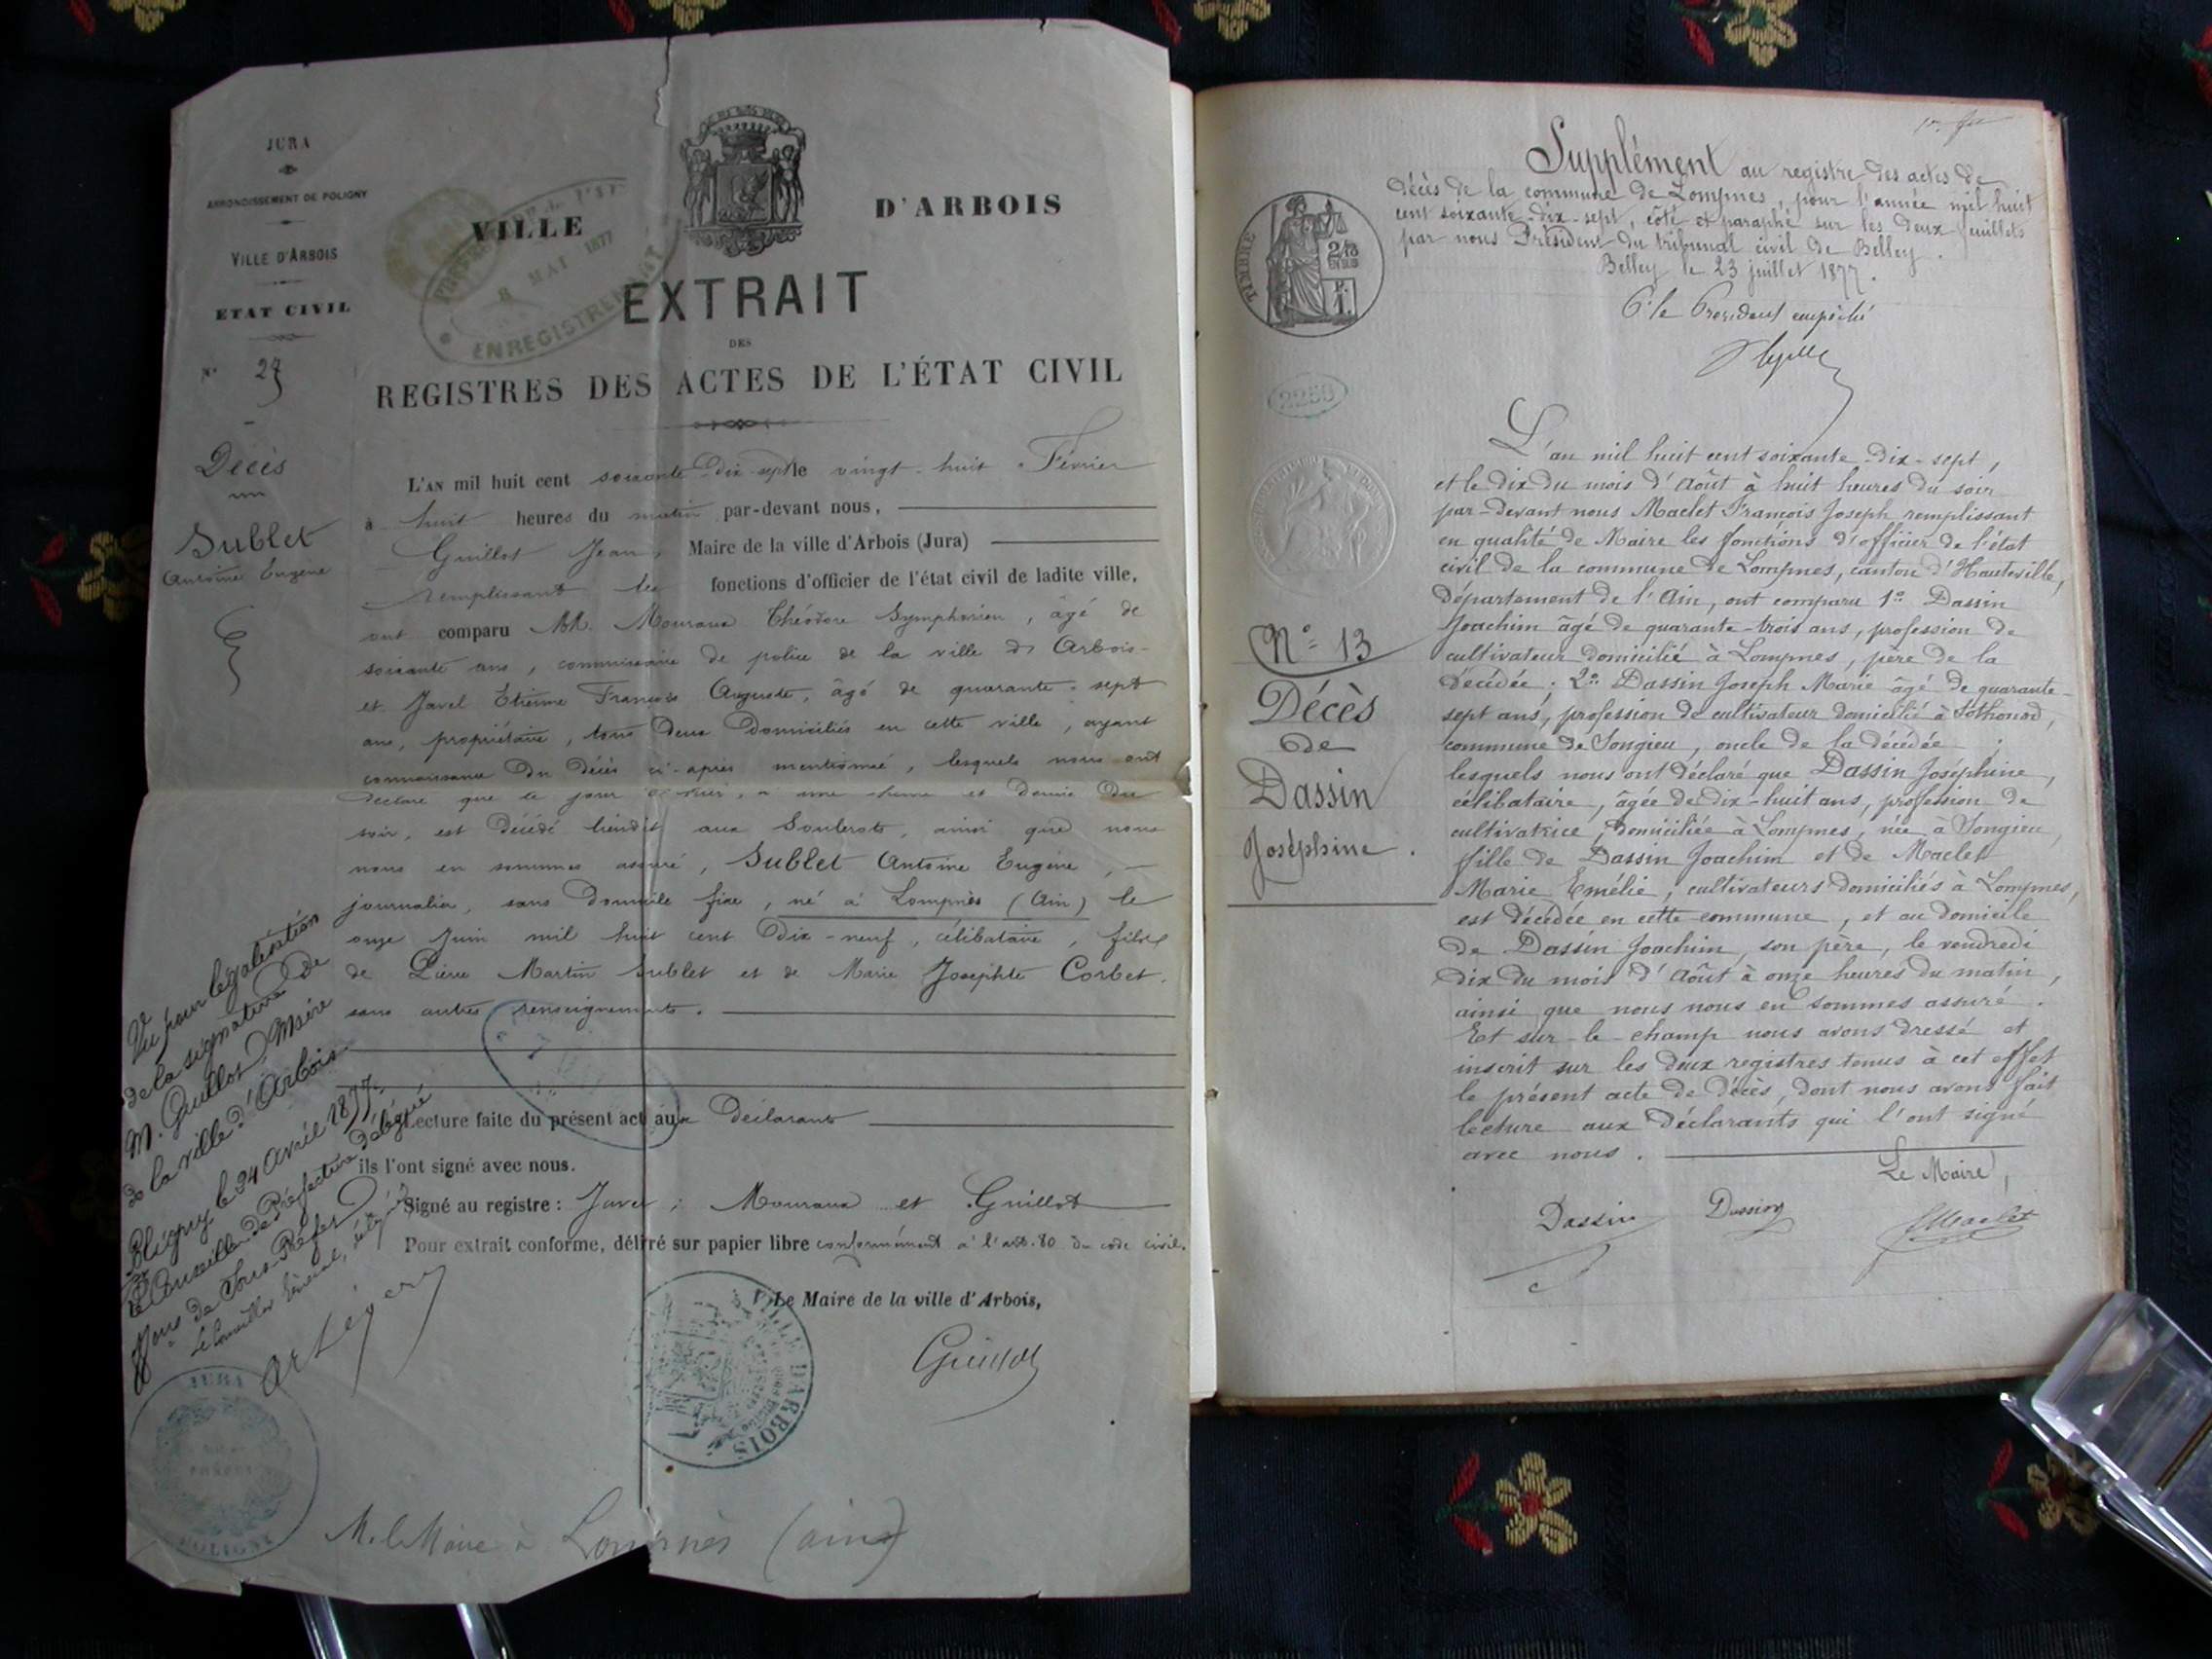 JURA
ARRONDISSEMENT DE POLIGNY
VILLE D'ARBOIS
ETAT CIVIL
N° 27
Décès
Sublet
Antoine Eugène
VILLE D'ARBOIS
8 MAI 1877
ENREGISTREMENT
EXTRAIT
DES
REGISTRES DES ACTES DE L'ÉTAT CIVIL
L'AN mil huit cent soixante-dix-sept le vingt-huit Février
à huit heures du matin par-devant nous,
Guillot Jean, Maire de la ville d'Arbois (Jura)
remplissant les fonctions d'officier de l'état civil de ladite ville,
ont comparu MM. Théodore Symphorien, âgé de
soixante ans, commissaire de police de la ville d'Arbois
et Javel Etienne François Auguste, âgé de quarante-sept
ans, propriétaire, tous deux domiciliés en cette ville, ayant
connaissance du décès ci-après mentionné, lesquels nous ont
déclaré que le jour d'hier, à une heure et demie du
soir, est décédé aux, ainsi que nous
nous en sommes assuré, Sublet Antoine Eugène,
journalier, sans domicile fixe, né à Lompnès (Ain) le
onze Juin mil huit cent dix-neuf, célibataire, fils
de Pierre Martin Sublet et de Marie Josephte Corbet.
sans autres renseignements.
Lecture faite du présent acte aux déclarants
ils l'ont signé avec nous.
Signé au registre : Javel ; et Guillot
Pour extrait conforme, délivré sur papier libre conformément à l'art. 80 du code civil.
Le Maire de la ville d'Arbois,
Guillot
VILLE D'ARBOIS
Vu pour légalisation
de la signature de
M. Guillot Maire
de la ville d'Arbois
Poligny le 24 Avril 1877.
Le Conseiller de Préfecture délégué
Sous-Préfet
JURA
POLIGNY
M. le Maire à Lompnès (ain)
Supplément au registre des actes de
décès de la commune de Lompnes, pour l'année mil huit
cent soixante-dix-sept, côté et paraphé sur les deux feuillets
par nous Président du tribunal civil de Belley.
Belley le 23 juillet 1877.
P. le Président empêché
TIMBRE
2250
L'an mil huit cent soixante-dix-sept,
et le dix du mois d'Août à huit heures du soir
par-devant nous Maclet François Joseph remplissant
en qualité de Maire les fonctions d'officier de l'état
civil de la commune de Lompnes, canton d'Hauteville,
département de l'Ain, ont comparu 1° Dassin
Joachim âgé de quarante-trois ans, profession de
cultivateur domicilié à Lompnes, père de la
décédée ; 2° Dassin Joseph Marie âgé de quarante-
sept ans, profession de cultivateur domicilié à Sothonod,
commune de Songieu, oncle de la décédée ;
lesquels nous ont déclaré que Dassin Joséphine,
célibataire, âgée de dix-huit ans, profession de
cultivatrice, domiciliée à Lompnes, née à Songieu,
fille de Dassin Joachim et de Maclet
Marie Emélie, cultivateurs domiciliés à Lompnes,
est décédée en cette commune, et au domicile
de Dassin Joachim, son père, le vendredi
dix du mois d'Août à onze heures du matin,
ainsi que nous nous en sommes assuré.
Et sur-le-champ nous avons dressé et
inscrit sur les deux registres tenus à cet effet
le présent acte de décès, dont nous avons fait
lecture aux déclarants qui l'ont signé
avec nous.
Le Maire,
Dassin Dassin Maclet
N° 13
Décès
de
Dassin
Joséphine.